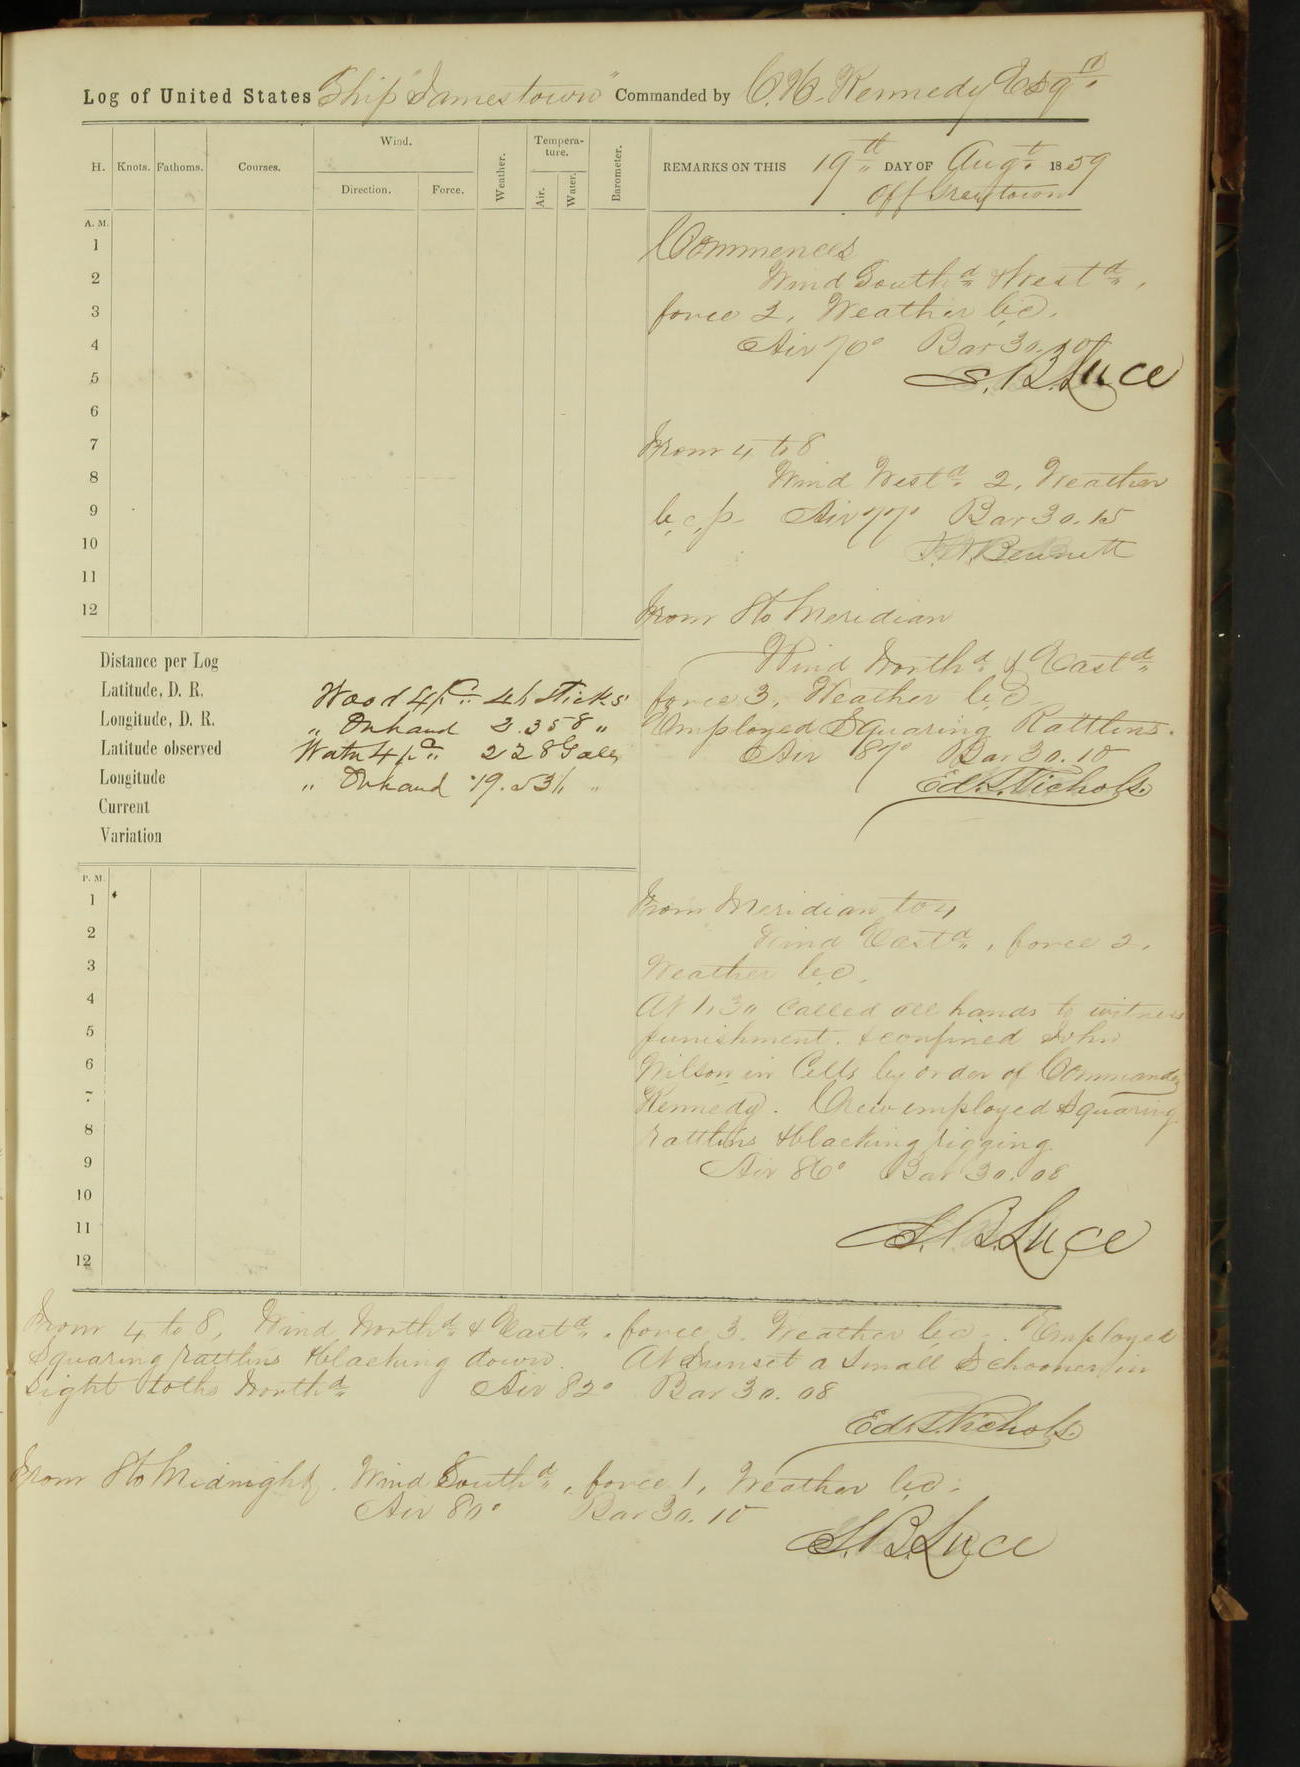 Log of United States Ship "Jamestown" Commanded by C. H. Kennedy Esqr.
H. Knots. Fathoms. Courses. Wind. Direction. Force. Weather. Tempera-ture. Air. Water. Barometer.
REMARKS ON THIS 19th DAY OF Augt. 1859
Off Greytown
A. M.
1
2
3
4
5
6
7
8
9
10
11
12
Commences
Wind Southd & Westd,
force 2, Weather b.c.
Air 70° Bar 30.10
S. B. Luce
From 4 to 8
Wind Westd. 2, Weather
b.c.p. Air 77° Bar 30.15
Bennett
From 8 to Meridian
Wind Northd. & Eastd.
force 3, Weather b.c.
Employed Squaring Rattlins.
Air 87° Bar 30.10
Ed. T. Nichols.
Distance per Log
Latitude, D. R.
Longitude, D. R.
Latitude observed
Longitude
Current
Variation
Wood Sticks
" On hand 2.358 "
Water 228 Galls
" On hand "
P. M.
1
2
3
4
5
6
7
8
9
10
11
12
From Meridian to 4
Wind Eastd., force 2,
Weather b.c.
At 1.30 called all hands to witness
punishment. & confined John
Wilson in Cells by order of Commander
Kennedy. Crew employed Squaring
rattlins & blacking rigging.
Air 86° Bar 30.08
S. B. Luce
From 4 to 8, Wind Northd. & Eastd., force 3. Weather b.c. Employed
Squaring rattlins & blacking down. At Sunset a small Schooner in
sight to the Northd. Air 82° Bar 30.08
Ed. T. Nichols.
From 8 to Midnight. Wind Southd., force 1, Weather b.c.
Air 80° Bar 30.10
S. B. Luce